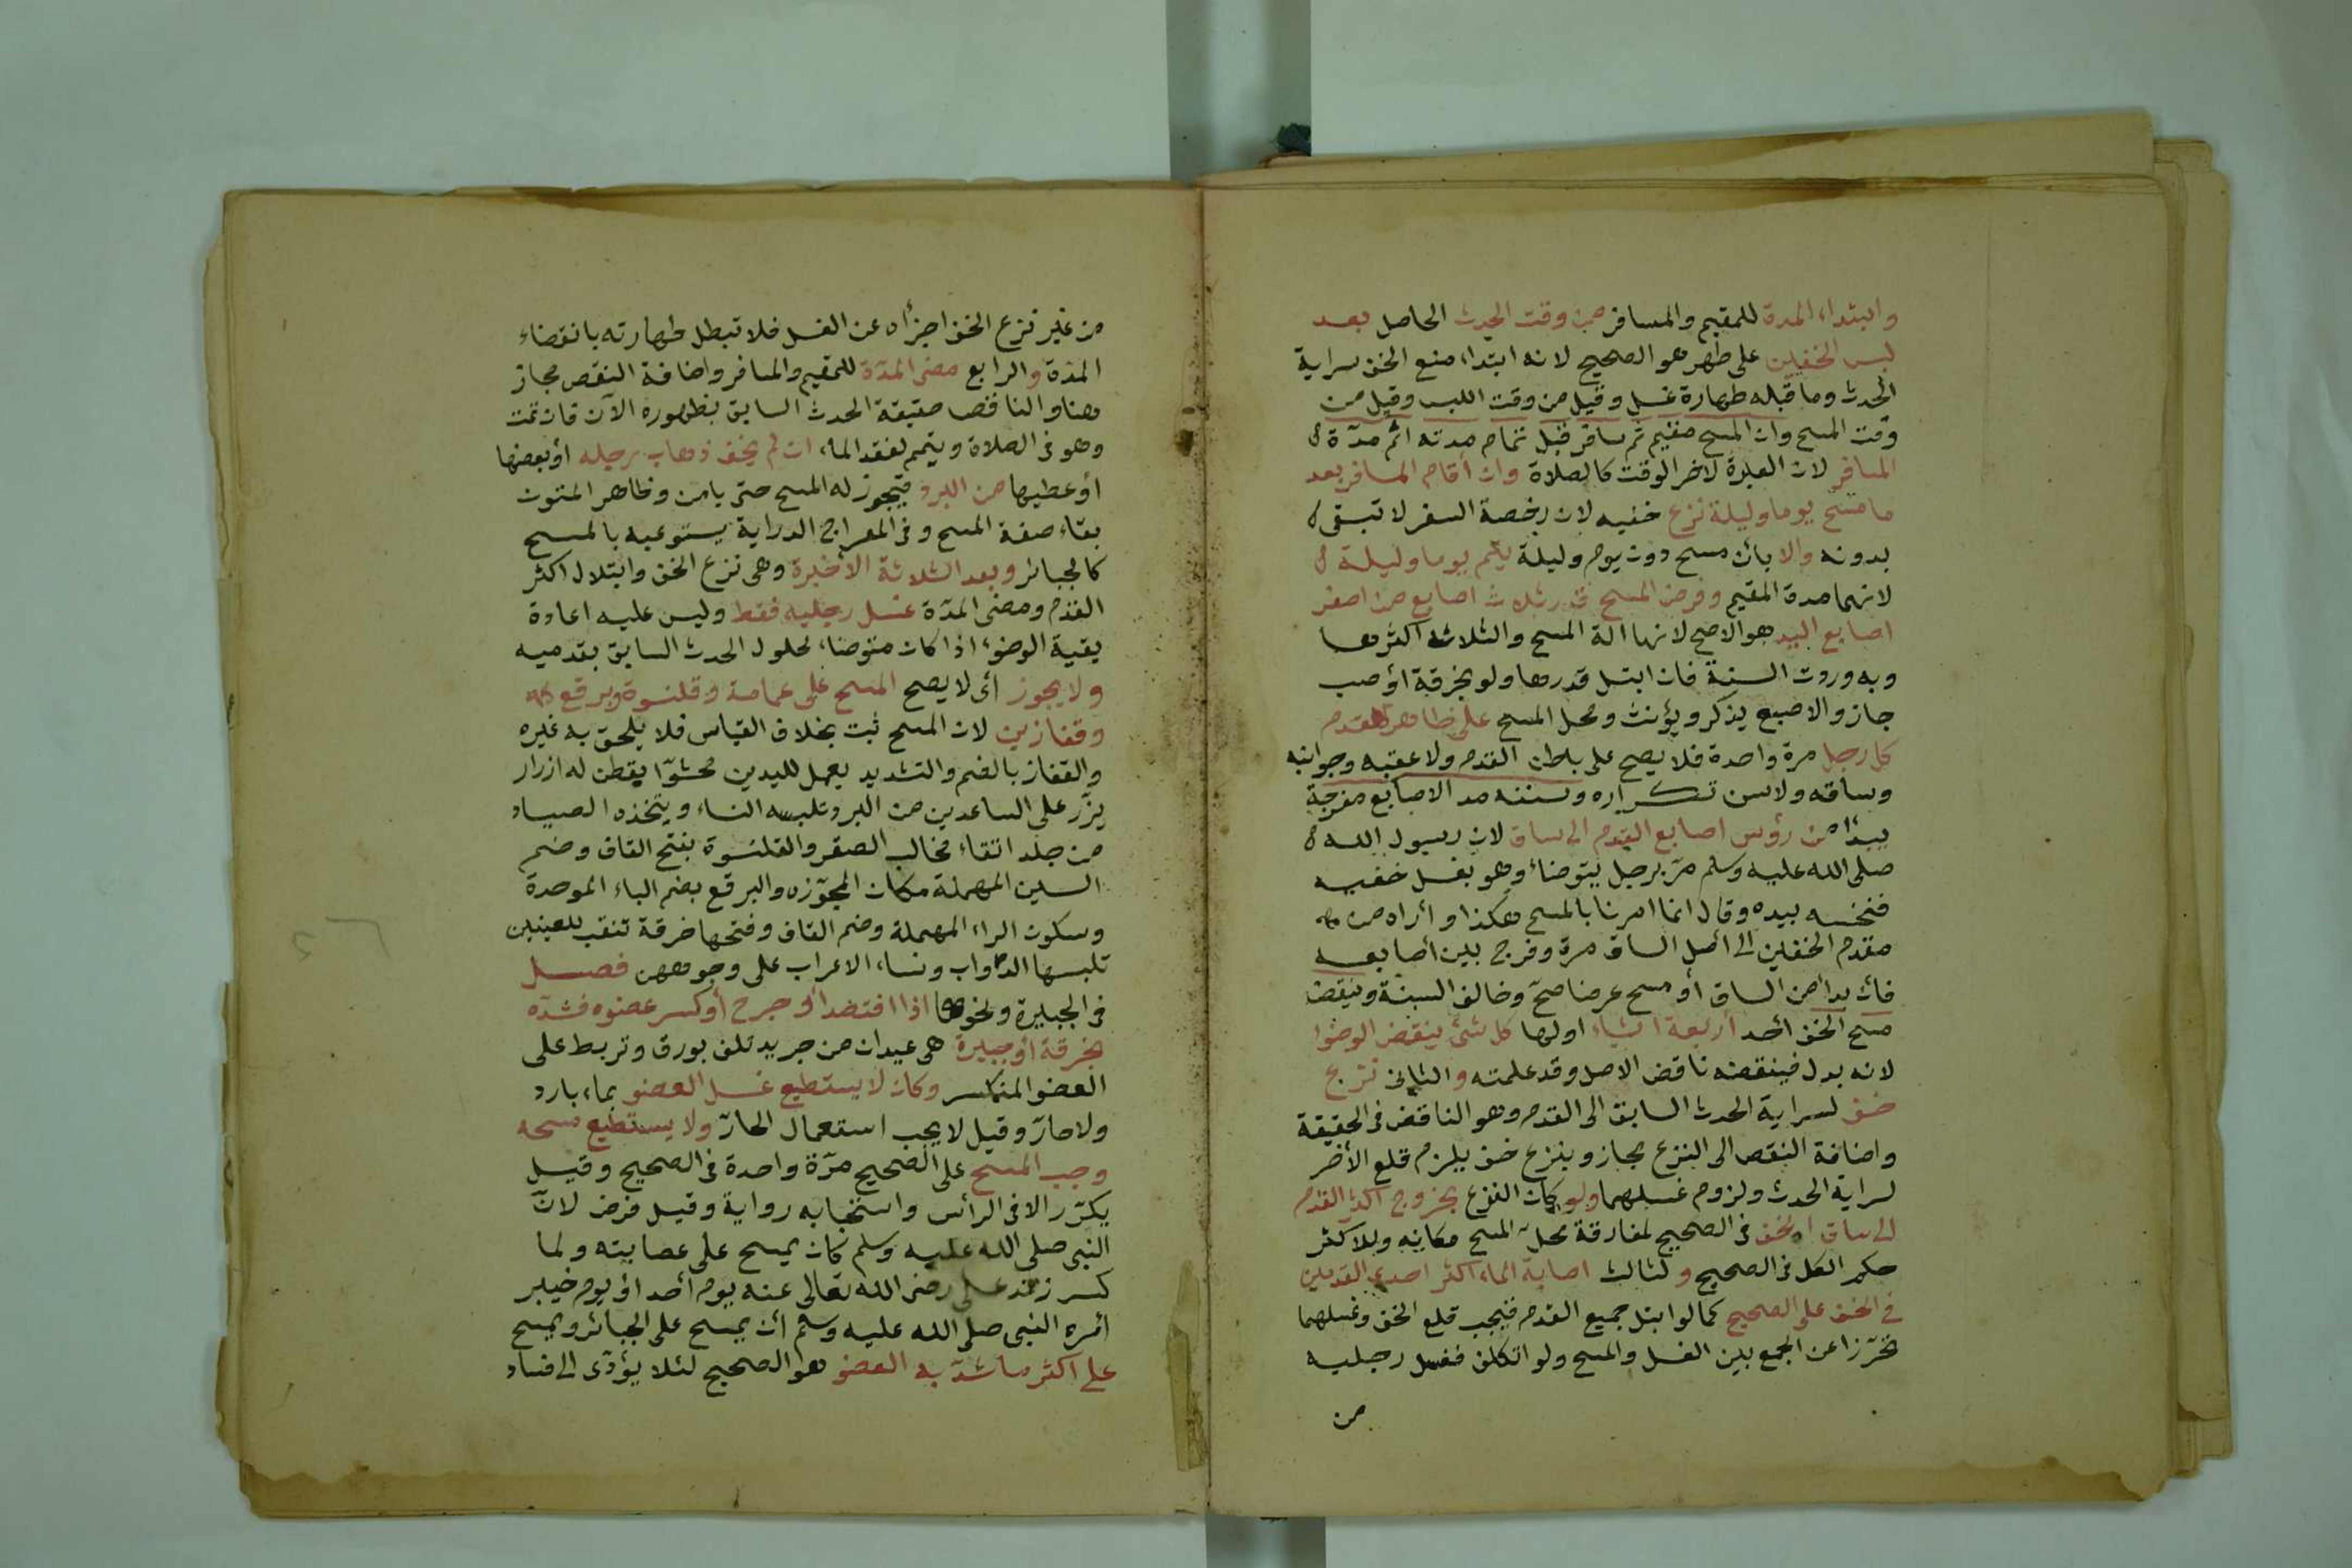 وابتداء المدة للمقيم والمسافر من وقت الحدث الحاصل بعد
لبس الخفين على طهر هو الصحيح لانه ابتداء منع الخف سراية
الحدث وما قبله طهارة غسل وقيل من وقت اللبس وقيل من
وقت المسح وان المسح مقيم ثم سافر قبل تمام مدته اتم مدة
المسافر لان العبرة لاخر الوقت كالصلاة وان أقام المسافر بعد
ما مسح يوما وليلة نزع خفيه لان رخصة السفر لا تبقى
بدونه والا بأن مسح دون يوم وليلة يتم يوما وليلة
لانهما مدة المقيم وفرض المسح قدر ثلاث اصابع من اصغر
اصابع اليد هو الاصح لانها الة المسح والثلاثه اكثرها
وبه وردت السنة فان ابتل قدرها ولو بخرقة أو صب
جاز والاصبع يذكر ويؤنث ومحل المسح على ظاهر القدم
كل رجل مرة واحدة فلا يصح على باطن القدم ولا عقبه وجوانبه
وساقه ولا سن تكراره وسننه مد الاصابع مفرجة
يبدأ من رؤس اصابع القدم الى ساق لان رسول الله
صلى الله عليه وسلم مرّ برجل يتوضأ وهو يغسل خفيه
فنخسه بيده وقال انما امرنا بالمسح هكذا وأراه من
مقدم الخفين الى أصل الساق مرة وفرج بين أصابعه
فان بدأ من الساق أو مسح عرضا صحّ وخالف السنة وينقض
مسح الخف أحد أربعة اشياء اولها كل شئ ينقض الوضوء
لانه بدل فينقضه ناقض الاصل وقد علمته والثانى نزع
خف لسراية الحدث السابق الى القدم وهو الناقض فى الحقيقة
واضافة النقص الى النزع مجاز وبنزع خف يلزم قلع الأخر
لسراية الحدث ولزوم غسلهما ولو كان النزع بخروج اكثر القدم
الى ساق الخف فى الصحيح لمفارقة محل المسح مكانه وللاكثر
حكم الكل فى الصحيح والثالث اصابة الماء اكثر احدى القدمين
فى الخف على الصحيح كما لو ابتل جميع القدم فيجب قلع الخف وغسلهما
تحرّزا عن الجمع بين الغسل والمسح ولو اتكلف فغسل رجليه
من
من غير نزع الخف اجزأه عن الغسل فلا تبطل طهارته بانقضاء
المدة والرابع مضى المدّة للمقيم والمسافر واضافة النقص مجاز
هنا والناقض حقيقة الحدث السابق بظهوره الآن فان تمت
وهو فى الصلاة ويتيمم لفقد الماء ان لم يخف ذهاب رجله أو بعضها
أو عطبها من البرد فيجوز له المسح حتى يامن وظاهر المتون
بقاء صفة المسح وفى المعراج الدراية يستوعبه بالمسح
كالجبائر وبعد الثلاثة الأخيرة وهى نزع الخف وابتلال اكثر
القدم ومضى المدّة غسل رجليه فقط وليس عليه اعادة
بقية الوضوء اذا كان متوضا، لحلول الحدث السابق بقدميه
ولا يجوز أى لا يصح المسح على عمامة وقلنسوة وبرقع
وقفازين لان المسح ثبت بخلاف القياس فلا يلحق به غيره
والقفاز بالضم والتشديد يعمل لليدين محشوّا بقطن له ازرار
يزّر على الساعدين من البرد وتلبسه النساء ويتخذه الصياد
من جلد اتقاء مخالب الصقر والقلنسوة بفتح القاف وضم
السين المهملة مكان المجوّزه والبرقع بضم الباء الموحدة
وسكون الراء المهملة وضم القاف وفتحها خرقة تنقب للعينين
تلبسها الدواب ونساء الاعراب على وجوههن فصل
فى الجبيرة ونحوها اذا افتصد أو جرح أو كسر عضوه فشدّه
بخرقة أو جبيرة هى عيدان من جريد تلف بورق وتربط على
العضو المنكسر وكان لا يستطيع غسل العضو بماء بارد
ولا حارّ وقيل لا يجب استعمال الحارّ ولا يستطيع مسحه
وجب المسح على الصحيح مرّة واحدة فى الصحيح وقيل
يكرّر الا فى الرأس واستحبابه رواية وقيل فرض لانّ
النبى صلى الله عليه وسلم كان يمسح على عصابته ولما
كسر زند على رضى الله تعالى عنه يوم أحد أو يوم خيبر
أمره النبى صلى الله عليه وسلم أن يمسح على الجبائر ويمسح
على اكثر ما شدّ به العضو هو الصحيح لئلا يؤدّى الى فساد